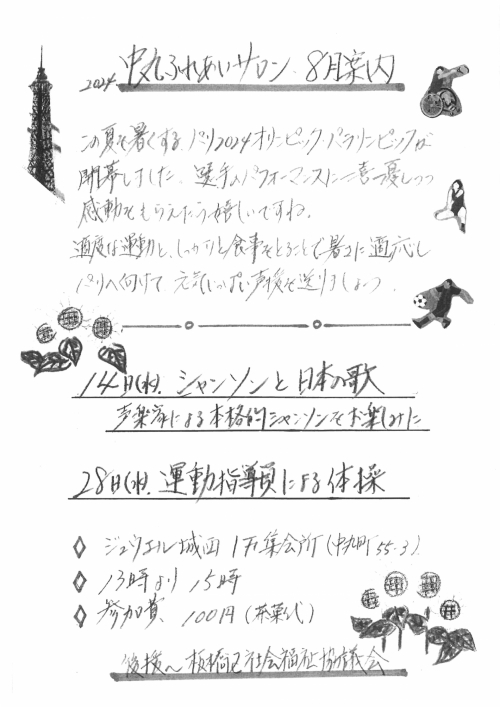 2024 中丸ふれあいサロン 8月案内
この夏を暑くする、パリ2024オリンピック・パラリンピックが
開幕しました。選手のパフォーマンスに一喜一憂しつつ
感動をもらえたら嬉しいですね。
適度な運動と、しっかりと食事をとることで暑さに適応し
パリへ向けて元気いっぱい声援を送りましょう.
14日(水). シャンソンと日本の歌
声楽家による本格的シャンソンをお楽しみに
28日(水). 運動指導員による体操
◇ ジュウエル城西 1F集会所(中丸町55-3)
◇ 13時より15時
◇ 参加費 100円(茶菓代)
後援〜板橋区社会福祉協議会